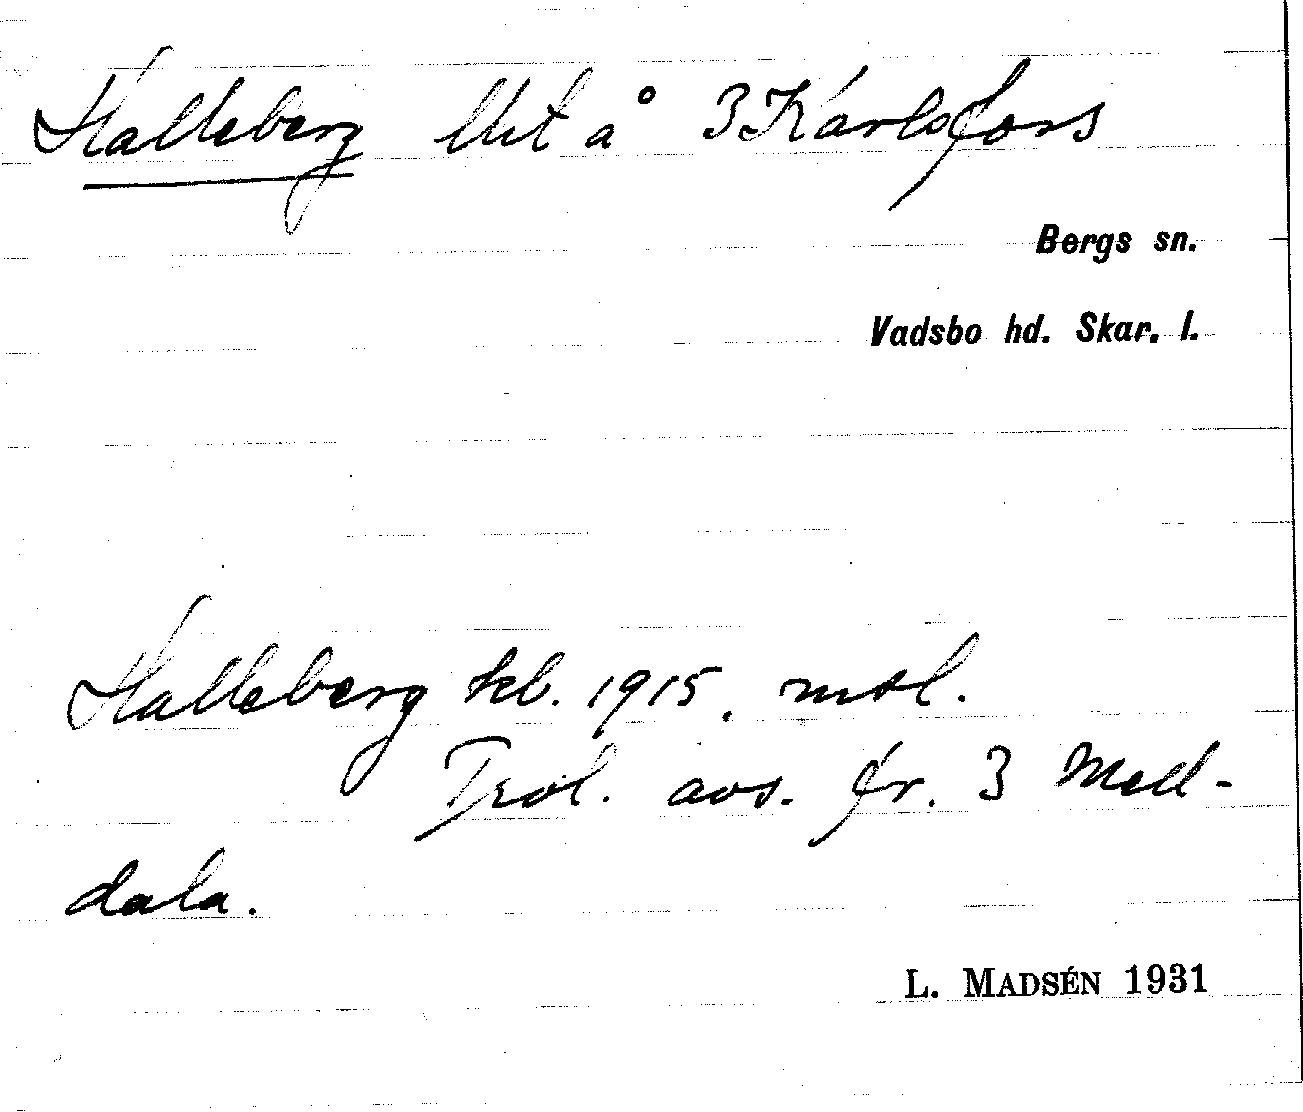 Halleberg lht å 3 Karlsfors
Bergs sn.
Vadsbo hd. Skar. l.
Halleberg kb. 1915, mtl.
Trol. avs. fr. 3 Mell-
dala.
L. MADSÉN 1931